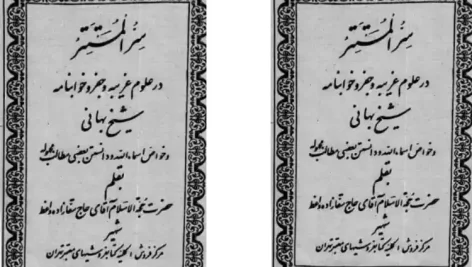 سرّ المستتر
در علوم غریبه و جفر و خوابنامه
شیخ بهائی
و خواص اسماء الله و دانستن بعضی مطالب
بقلم
حضرت حجة الاسلام آقای حاج سقازاده واعظ
شهیر
مرکز فروش کلیه کتابفروشیهای معتبر تهران
سرّ المستتر
در علوم غریبه و جفر و خوابنامه
شیخ بهائی
و خواص اسماء الله و دانستن بعضی مطالب
بقلم
حضرت حجة الاسلام آقای حاج سقازاده واعظ
شهیر
مرکز فروش کلیه کتابفروشیهای معتبر تهران